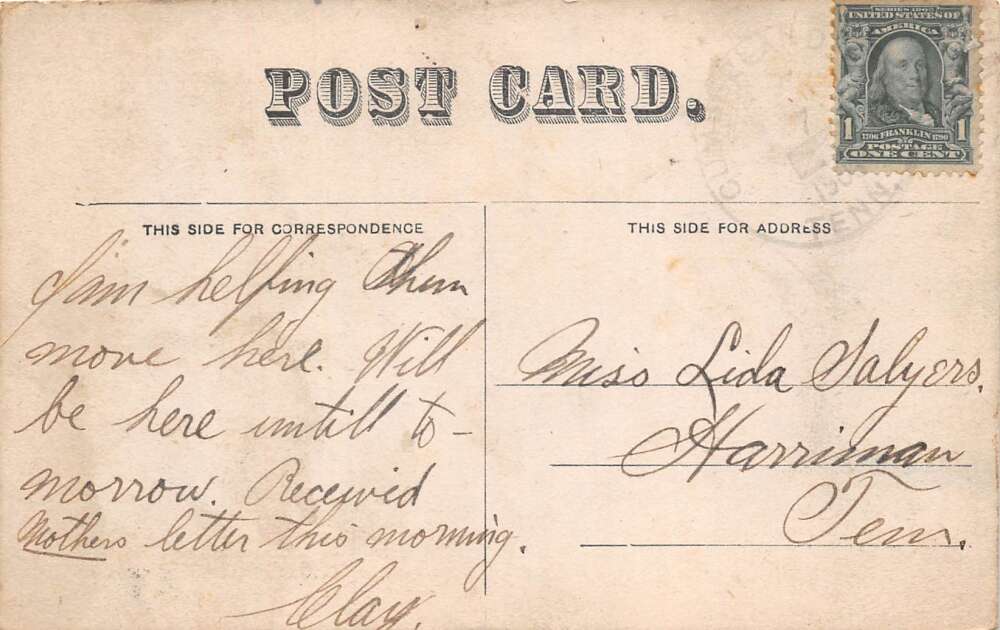 POST CARD.
SERIES 1902
UNITED STATES OF
AMERICA
1 1706 FRANKLIN 1790 1
POSTAGE
ONE CENT
190
TENN.
THIS SIDE FOR CORRESPONDENCE
I'am helping them
move here. Will
be here untill to-
morrow. Received
Mothers letter this morning.
Clay.
THIS SIDE FOR ADDRESS
Miss Lida Salyers.
Harriman
Tenn.